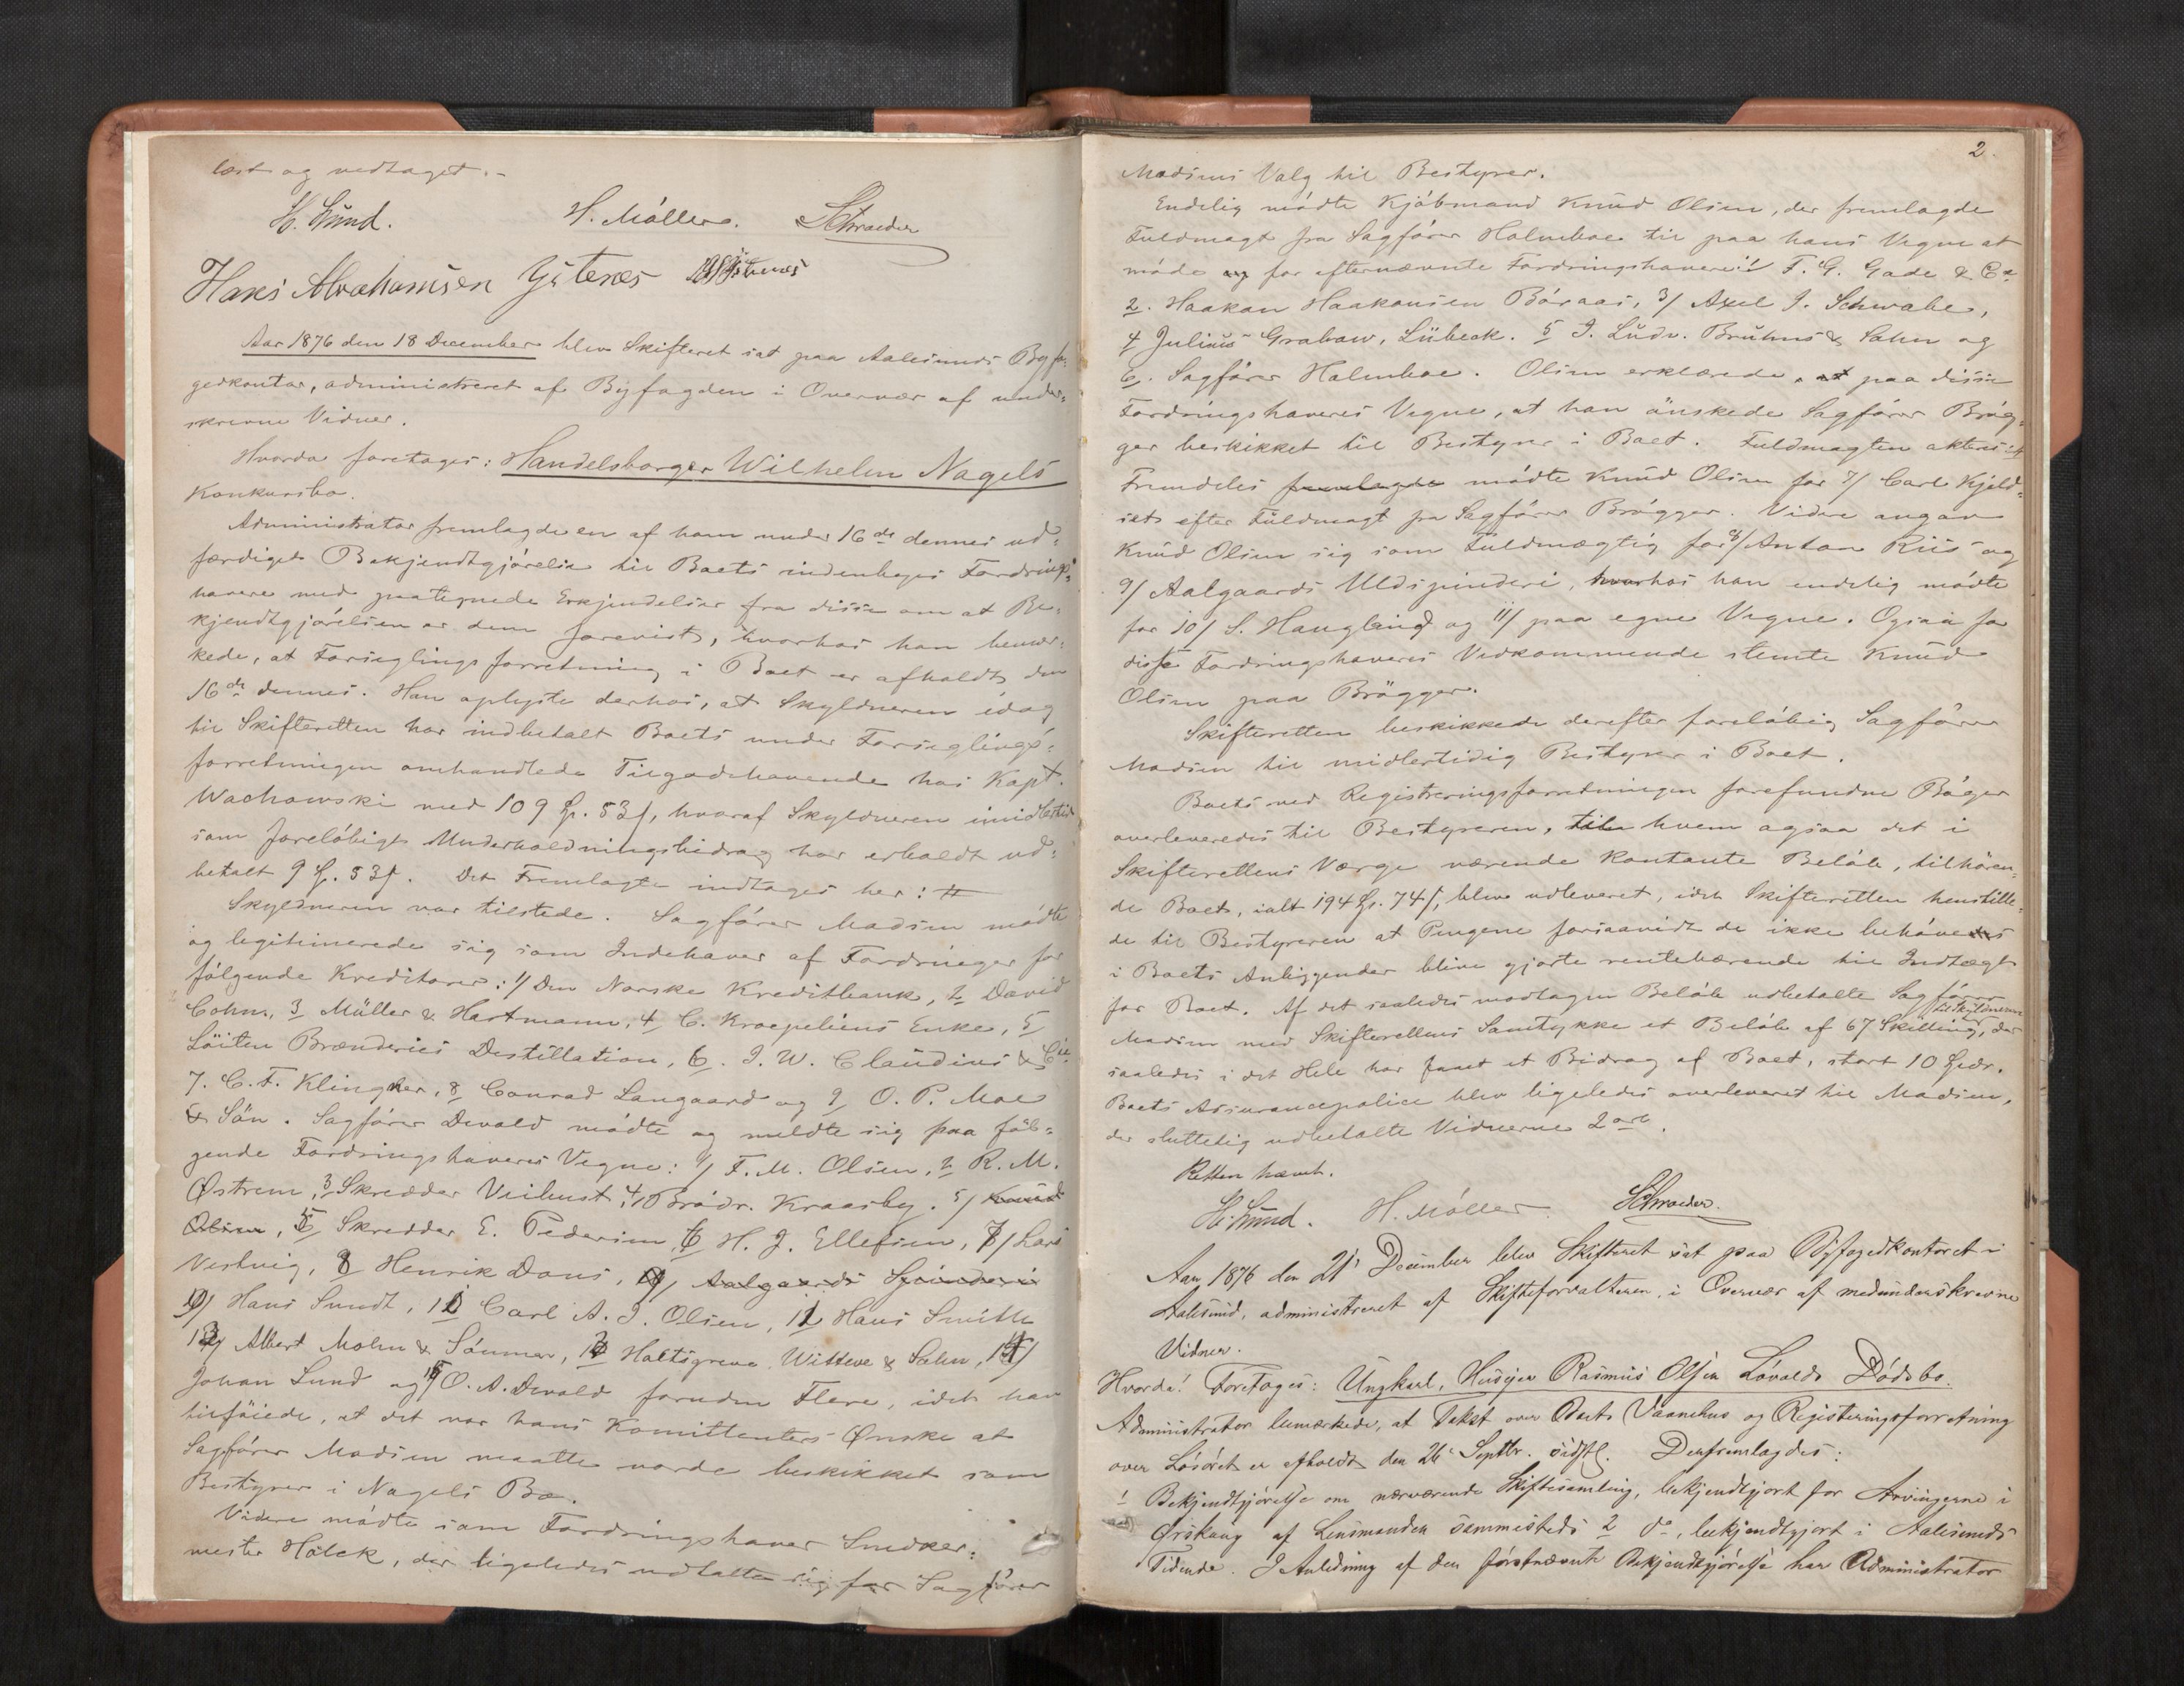 læst og vedtaget.-
H. Lund. H. Möller. Schroeder
Hans Abrahamsen Ytenes
Aar 1876 den 18 December blev Skifteret sat paa Aalesunds Byfo-
gedkontor, administreret af Byfogden i Overvær af under-
skrevne Vidner.
Hvorda foretoges: Handelsborger Wilhelm Nagels
Konkursbo.
Administrator fremlagde en af ham under 16de dennes ud-
færdiget Bekjendtgjörelse til Boets indenbyes Fordrings-
havere med paategnede Erkjendelser fra disse om at Be-
kjendtgjörelsen er dem forevist, hvorhos han bemær-
kede, at Forseglingsforretning i Boet er afholdt den
16de dennes. Han oplyste derhos, at Skyldneren idag
til Skifteretten har indbetalt Boets under Forseglings-
forretningen omhandlede Tilgodehavende hos Kapt.
Wachowski med 109 Sp. 53 s, hvoraf Skyldneren imidlertid
som foreløbigt Underholdningsbidrag har erholdt ud-
betalt 9 Sp. 53 s. Det Fremlagte indtages her: #
Skyldneren var tilstede. Sagförer Madsen mödte
og legitimerede sig som Indehaver af Fordringer for
fölgende Kreditorer: 1/ Den Norske Kreditbank, 2 David
Cohn, 3 Müller & Hartmann, 4 C. Kroepeliens Enke, 5
Löiten Brænderies Destillation, 6. I. W. Claudius & Cie.
7. C. F. Klingker, 8 Conrad Langaard og 9 O. P. Moe
& Sön. Sagförer Devold mödte og meldte sig paa föl-
gende Fordringshaveres Vegne: 1/ F. M. Olsen, 2 R. M.
Østrem, 3 Skredder Viihust, 4/ Brödr. Kraasby. 5/ Knud
Olsen, 5 Skredder E. Pedersen, 6 H. J. Ellefsen, 7/ Lars
Vestvig, 8 Henrik Dons, 9/ Aalgaards Spinderi
9/ Hans Sundt, 10 Carl A. J. Olsen, 11 Hans Smith
12/ Albert Mohn & Sönner, 13 Holtsgreve Witteve & Sohn, 14/
Johan Lund og 15/ O. A. Devold foruden Flere, idet han
tilföiede, at det var hans Komittenters Ønske at
Sagförer Madsen maatte vorde beskikket som
Bestyrer i Nagels Bo.
Videre mödte som Fordringshaver Snedker-
mester Holck, der ligeledes udtalte sig for Sagförer
2.
Madsens Valg til Bestyrer.
Endelig mödte Kjöbmand Knud Olsen, der fremlagde
Fuldmagt fra Sagförer Holmboe til paa hans Vegne at
möde og for efternævnte Fordringshavere: 1/ F. G. Gade & Co
2. Haakon Haakonsen Böraas, 3/ Axel J. Schwabe,
4 Julius Grabow, Lübeck. 5 I. Ludv. Bruhns & Sohn og
6. Sagförer Holmboe. Olsen erklærede, at paa disse
Fordringshaveres Vegne, at han önskede Sagförer Brög-
ger beskikket til Bestyrer i Boet. Fuldmagten akteres: #
Fremdeles fremlagde mödte Knud Olsen for 7/ Carl Kjeld-
seth efter Fuldmagt fra Sagförer Brögger. Videre angav
Knud Olsen sig som Fuldmægtig for 8/ Anton Riis og
9/ Aalgaards Uldspinderi, hvorhos han endelig mödte
for 10/ S. Haugland og 11/ paa egne Vegne. Ogsaa for
disse Fordringshaveres Vedkommende stemte Knud
Olsen paa Brögger.
Skifteretten beskikkede derefter forelöbig Sagförer
Madsen til midlertidig Bestyrer i Boet.
Boets ved Registreringsforretningen forefundne Böger
overleveredes til Bestyreren, til hvem ogsaa det i
Skifterettens Værge værende kontante Belöb, tilhören-
de Boet, ialt 194 Sp. 74 s, blev udleveret, idet Skifteretten henstille-
de til Bestyreren at Pengene forsaavidt de ikke behöves
i Boets Anliggender blive gjorte rentebærende til Indtægt
for Boet. Af det saaledes modtagne Belöb udbetalte Sagförer
Madsen med Skifterettens Samtykke et Belöb af 67 Skilling, til Skyldneren, der
saaledes i det Hele har faaet et Bidrag af Boet, stort 10 Spdr.
Boets Assurancepolice blev ligeledes overleveret til Madsen,
der sluttelig udbetalte Vidnerne 2 ort.
Retten hævet.
H. Lund. H. Möller Schroeder.
Aar 1876 den 21' December blev Skifteret sat paa Byfogedkontoret i
Aalesund, administreret af Skifteforvalteren, i Overvær af medunderskrevne
Vidner.
Hvorda! Foretoges: Ungkarl, Huseier Rasmus Olsen Lövolds Dödsbo.
Administrator bemærkede, at Takst over Boets Vaanehus og Registeringsforretning
over Lösöret er afholdt den 26' Septbr. sidstl. Derfremlagdes:
1 Bekjendtgjörelse om nærværende Skiftesamling, bekjendtgjort for Arvingerne i
Ørskoug af Lensmanden sammesteds 2 do, bekjendtgjort i Aalesunds
Tidende. I Anledning af den förstnævnte Bekjendtgjörelse har Administrator